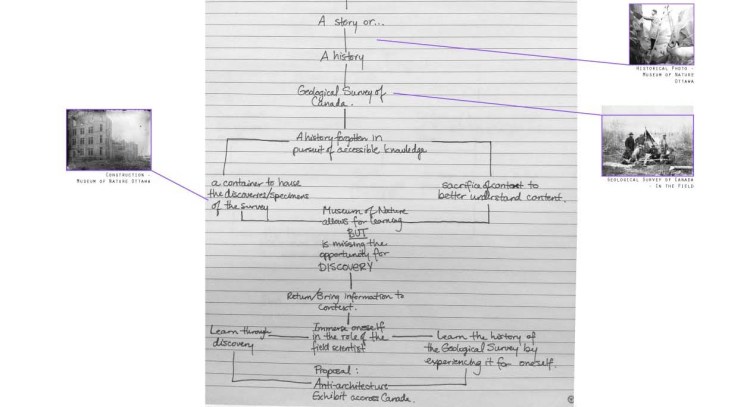 A story or...
A history
Geological Survey of
Canada.
A history forgotten in
pursuit of accessible knowledge
a container to house
the discoveries/specimens
of the survey
sacrifice of context to
better understand content.
Museum of Nature
allows for learning
BUT
is missing the
opportunity for
DISCOVERY
Return/Bring information to
context.
Learn through
discovery
Immerse oneself
in the role of the
field scientist
Learn the history of
the Geological Survey by
experiencing it for oneself.
Proposal:
Anti-architecture
Exhibit accross Canada.
Construction -
Museum of Nature Ottawa
Historical Photo -
Museum of Nature
Ottawa
Geological Survey of Canada
- In the Field